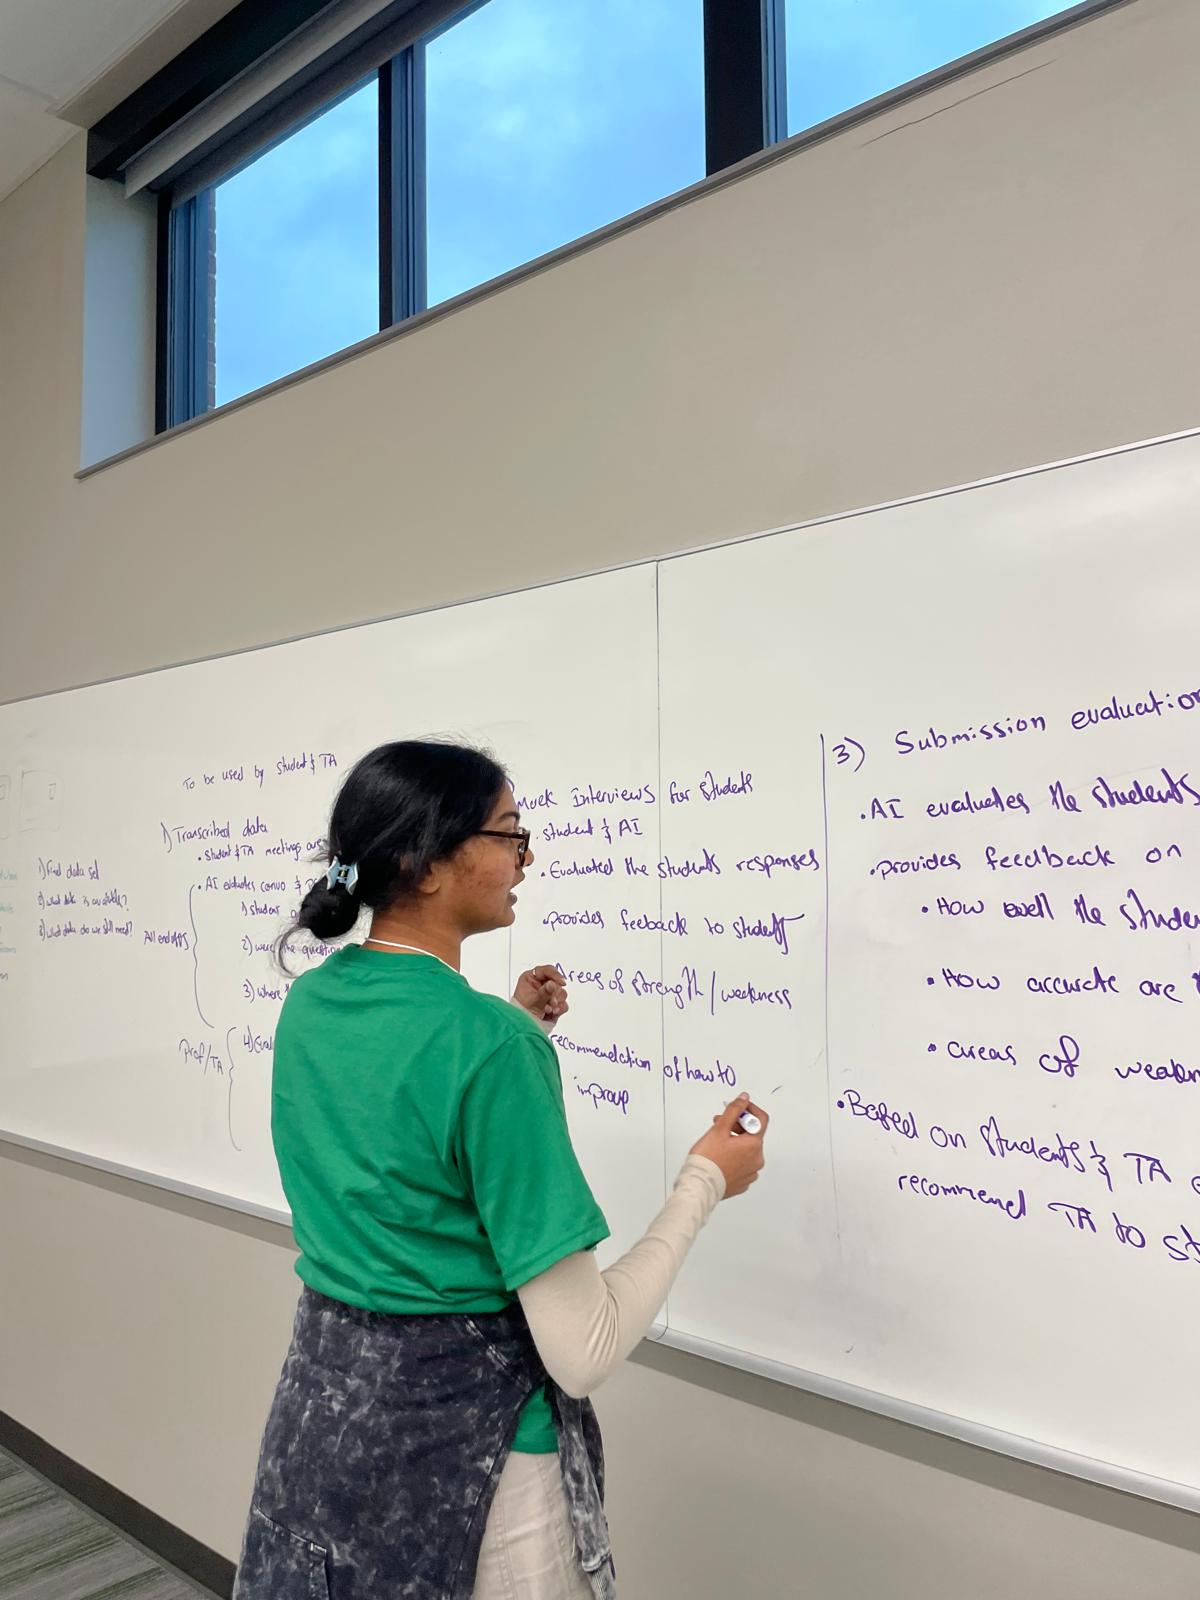 To be used by student & TA
1) Find data set
2) what data is available?
3) what data do we still need?
1) Transcribed data
• Student & TA meetings
• AI evaluates convo &
1) student
2) were the question
3) where
All end
Prof/TA
4)
Mock Interviews for students
• student & AI
• Evaluated the students responses
• provides feeback to student
Areas of strength / weakness
recommendation of how to
improup
3) Submission evaluation
• AI evaluates the students
• provides feedback on
• How well the studen
• How accurate are
• areas of weakn
• Based on students & TA
recommend TA to st